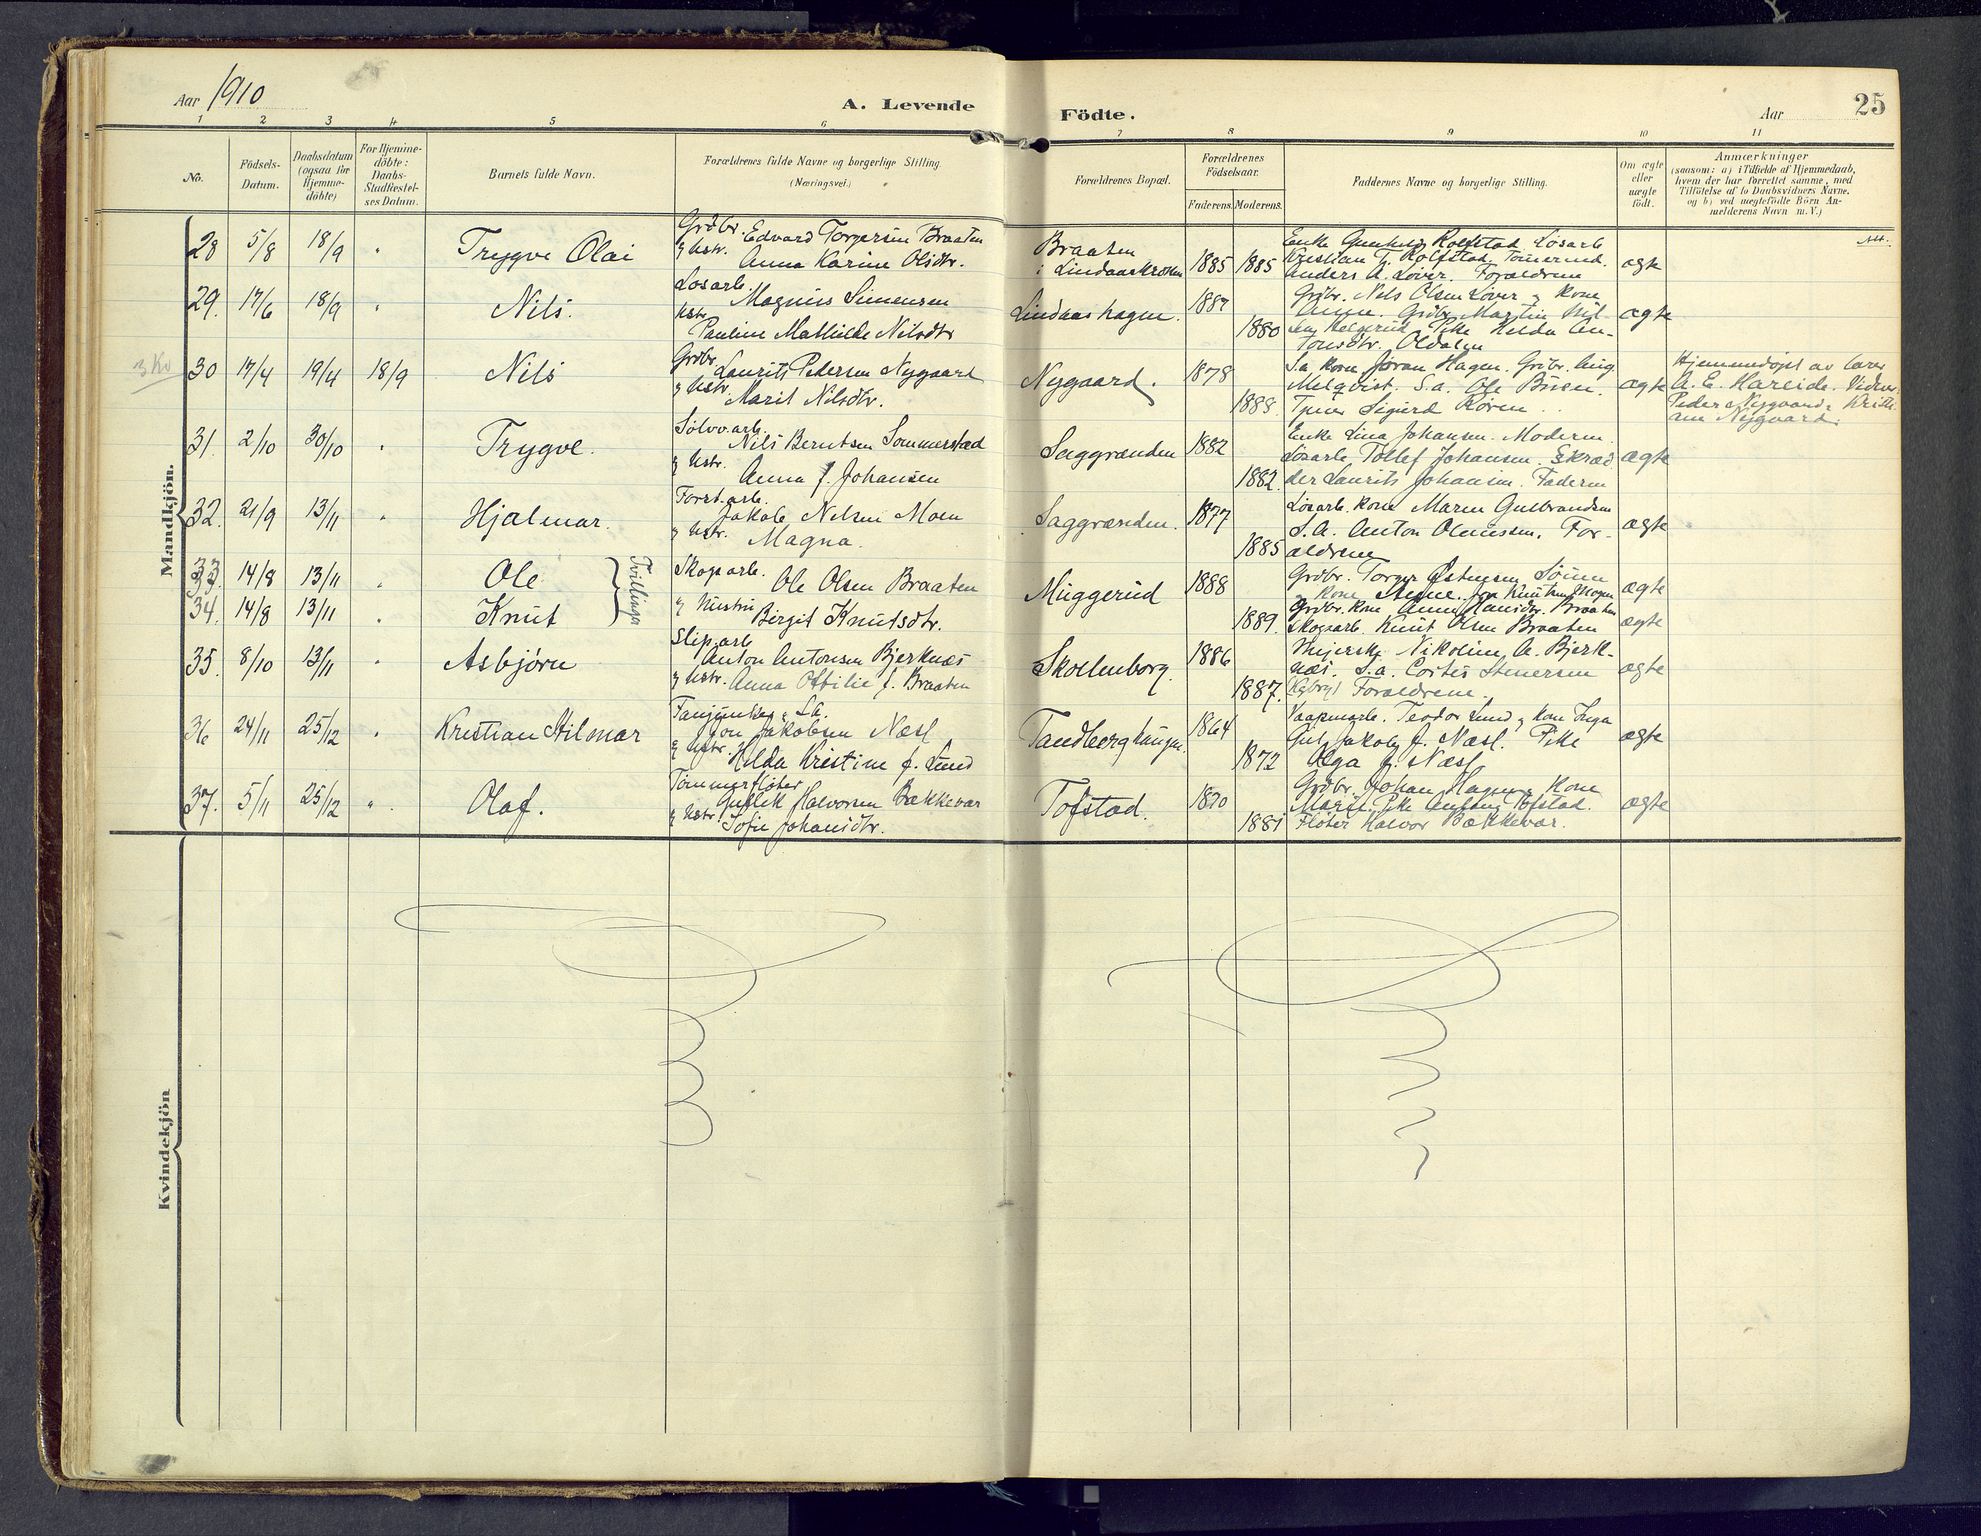 Aar 1910
A. Levende Födte.
Aar
25
1 2 3 4 5 6 7 8 9 10 11
No.
Födsels-Datum.
Daabsdatum (ogsaa for Hjemme-döbte)
For Hjemme-döbte: Daabs-Stadfæstel-ses Datum.
Barnets fulde Navn.
Forældrenes fulde Navne og borgerlige Stilling (Næringsvei.)
Forældrenes Bopæl.
Forældrenes Födselsaar.
Faderens. Moderens.
Faddernes Navne og borgerlige Stilling.
Om ægte eller uægte födt.
Anmærkninger
(saasom: a) i Tilfælde af Hjemmedaab,
hvem der har forrettet samme, med
Tilföielse af to Daabsvidners Navne,
og b) ved uægtefödte Börn An-
melderens Navn m. V.)
Mandkjön.
28 5/8 18/9 " Trygve Olai
Grdbr. Edvard Torgersen Braaten
& hstr. Anna Karine Olsdtr.
Braaten
i Lindaaskroken 1885 1885
Enke Gunhild Rolfstad Løsarb.
Kristian T. Rolfstad. Tømmermd.
Anders A. Løver. Forældrene
ægte
29. 17/6 18/9 " Nils.
Løsarb.
Magnus Simensen
hstr.
Pauline Mathilde Nilsdtr
Lindaashagen. 1887 1880
Grdbr. Nils Olsen Løver & kone
Anne. Grdbr. Martin Nil-
sen Helgerud Pike Helda An-
tonsdtr. Oldalen
ægte
3 Kv
30 17/4 19/4 18/9 Nils
Grdbr.
Laurits Pedersen Nygaard
& hstr. Marit Nilsdtr.
Nygaard. 1878 1888
S.a. kone Jøran Hagen. Grdbr. Aug.
Melqvist. S.a. Ole Buen.
Tjener Sigurd Røren
ægte
Hjemmedøpt av lærer
A. E. Hareide. Vidner
Peder Nygaard & Kristi-
ane Nygaard.
31. 2/10 30/10 " Trygve.
Sølvv.arb.
Nils Berntsen Sommerstad
& hstr.
Anna f. Johansen
Saggrænden 1882 1882.
Enke Lina Johansen. Moderen.
Løsarb. Tollef Johansen. Skræd
der Laurits Johansen. Faderen
ægte
32. 21/9 13/11 " Hjalmar.
Forst.arb.
Jakob Nilsen Moen
& hstr.
Magna.
Saggrænden. 1877 1885
Løsarb. kone Maren Gulbrandsen
S.A. Anton Olaussen. For-
ældrene
ægte
33 14/8 13/11 " Ole
34. 14/8 13/11 " Knut
Tvillinger
Skogsarb.
Ole Olsen Braaten
& hustru
Birgit Knutsdtr.
Muggerud 1888 1889.
Grdbr. Torger Østensen Sønne
& kone Anne. Jon Knutsen Mogen
Grdbr. kone Anne Hansdtr. Braaten
Skogsarb. Knut Olsen Braaten
ægte
ægte
35. 8/10 13/11 " Asbjørn
Slip.arb
Anton Antonsen Bjerknæs
& hstr. Anna Ottilie f. Braaten
Skollenborg. 1886 1887.
Meierske Nikoline A. Bjerk-
næs. S.a. Stenersen
Forældrene.
ægte
36 24/11 25/12 " Kristian Hilmar
Jon Jakobsen Næsl
& hstr. Hilda Kristine f. Lund
Tandberghaugen. 1864 1872
Vaapenarb. Teodor Lund & kone Inga
Gul. Jakob f. Næsl. Pike
Olga J. Næsl
ægte
37. 5/11 25/12 " Olaf.
Tømmerfløter
Gullik Halvorsen Bækkevar
& hstr. Sofie Johansdtr.
Tofstad. 1870 1881
Grdbr. Johan Hagen & kone
Marit. Pike Anborg Tofstad.
Fløter Halvor Bækkevar.
ægte
Kvindekjön